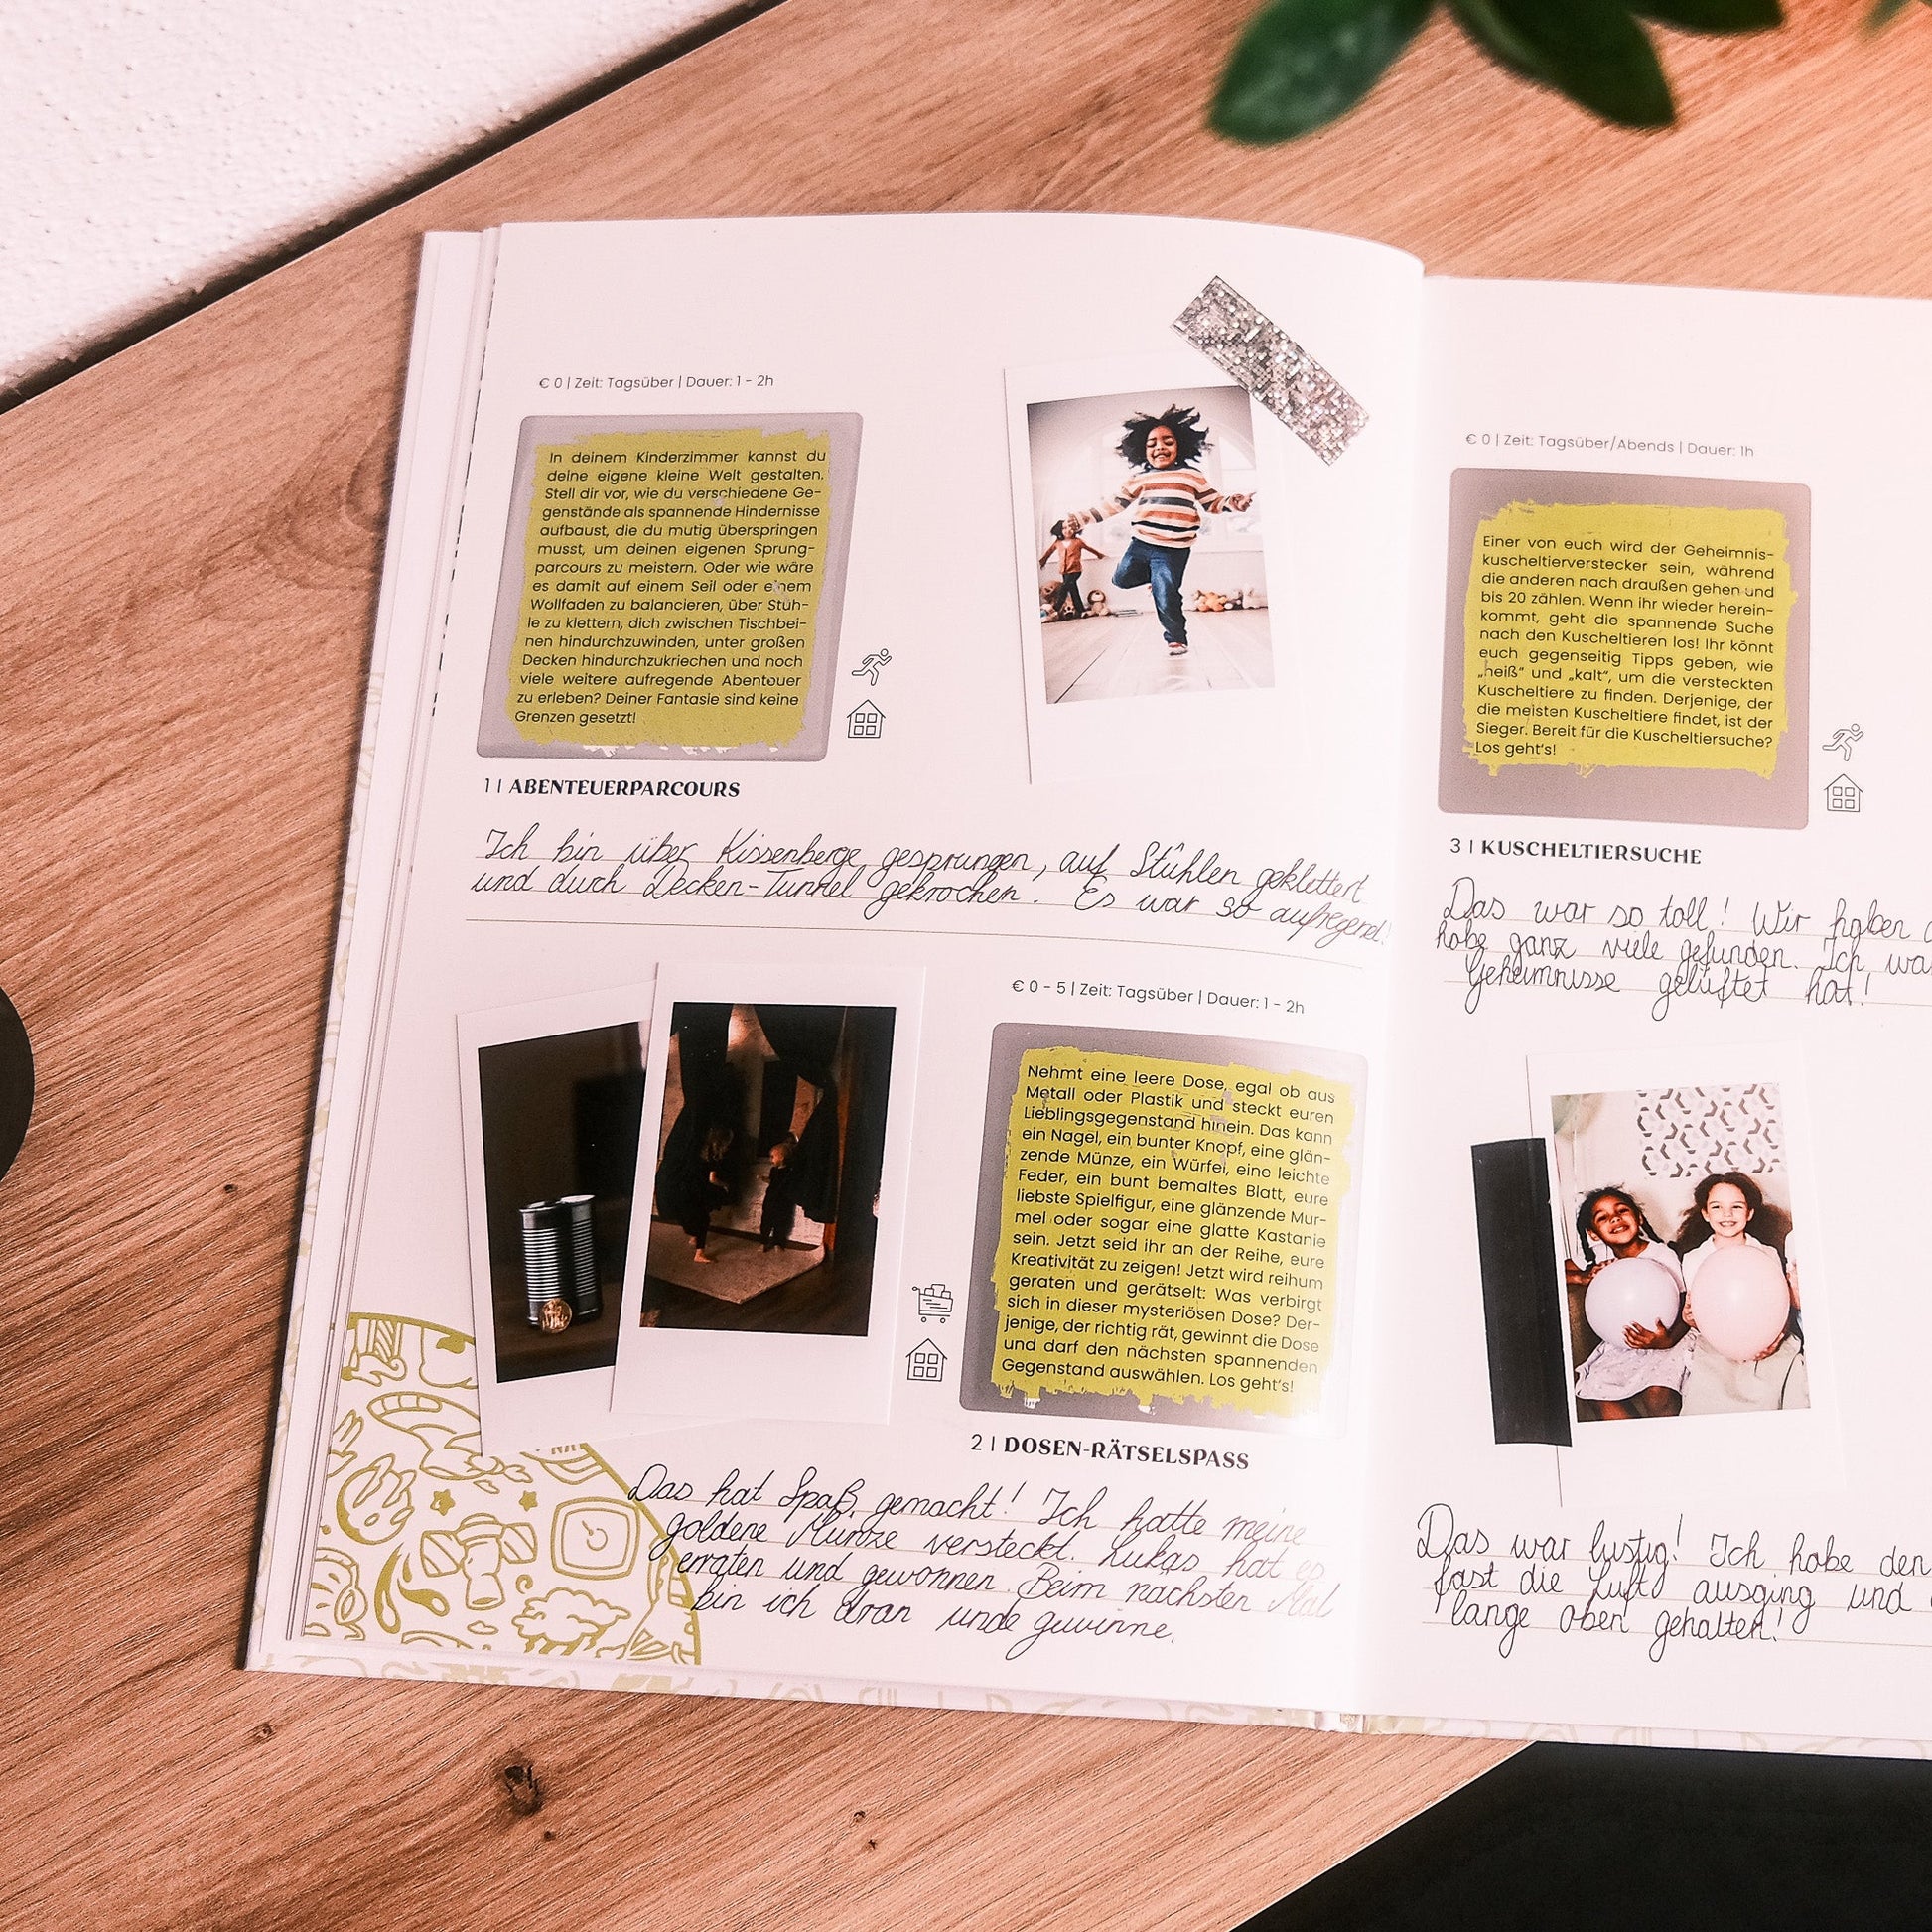 € 0 | Zeit: Tagsüber | Dauer: 1 - 2h
In deinem Kinderzimmer kannst du
deine eigene kleine Welt gestalten.
Stell dir vor, wie du verschiedene Ge-
genstände als spannende Hindernisse
aufbaust, die du mutig überspringen
musst, um deinen eigenen Sprung-
parcours zu meistern. Oder wie wäre
es damit auf einem Seil oder einem
Wollfaden zu balancieren, über Stüh-
le zu klettern, dich zwischen Tischbei-
nen hindurchzuwinden, unter großen
Decken hindurchzukriechen und noch
viele weitere aufregende Abenteuer
zu erleben? Deiner Fantasie sind keine
Grenzen gesetzt!
1 | ABENTEUERPARCOURS
Ich bin über Kissenberge gesprungen, auf Stühlen geklettert
und durch Decken-Tunnel gekrochen. Es war so aufregend!
€ 0 - 5 | Zeit: Tagsüber | Dauer: 1 - 2h
Nehmt eine leere Dose, egal ob aus
Metall oder Plastik und steckt euren
Lieblingsgegenstand hinein. Das kann
ein Nagel, ein bunter Knopf, eine glän-
zende Münze, ein Würfel, eine leichte
Feder, ein bunt bemaltes Blatt, eure
liebste Spielfigur, eine glänzende Mur-
mel oder sogar eine glatte Kastanie
sein. Jetzt seid ihr an der Reihe, eure
Kreativität zu zeigen! Jetzt wird reihum
geraten und gerätselt: Was verbirgt
sich in dieser mysteriösen Dose? Der-
jenige, der richtig rät, gewinnt die Dose
und darf den nächsten spannenden
Gegenstand auswählen. Los geht's!
2 | DOSEN-RÄTSELSPASS
Das hat Spaß gemacht! Ich hatte meine
goldene Münze versteckt. Lukas hat es
erraten und gewonnen. Beim nächsten Mal
bin ich dran und gewinne.
€ 0 | Zeit: Tagsüber/Abends | Dauer: 1h
Einer von euch wird der Geheimnis-
kuscheltierverstecker sein, während
die anderen nach draußen gehen und
bis 20 zählen. Wenn ihr wieder herein-
kommt, geht die spannende Suche
nach den Kuscheltieren los! Ihr könnt
euch gegenseitig Tipps geben, wie
„heiß“ und „kalt“, um die versteckten
Kuscheltiere zu finden. Derjenige, der
die meisten Kuscheltiere findet, ist der
Sieger. Bereit für die Kuscheltiersuche?
Los geht's!
3 | KUSCHELTIERSUCHE
Das war so toll! Wir haben
habe ganz viele gefunden. Ich
Geheimnisse gelüftet hat!
Das war lustig! Ich habe den
fast die Luft ausging und
lange oben gehalten!